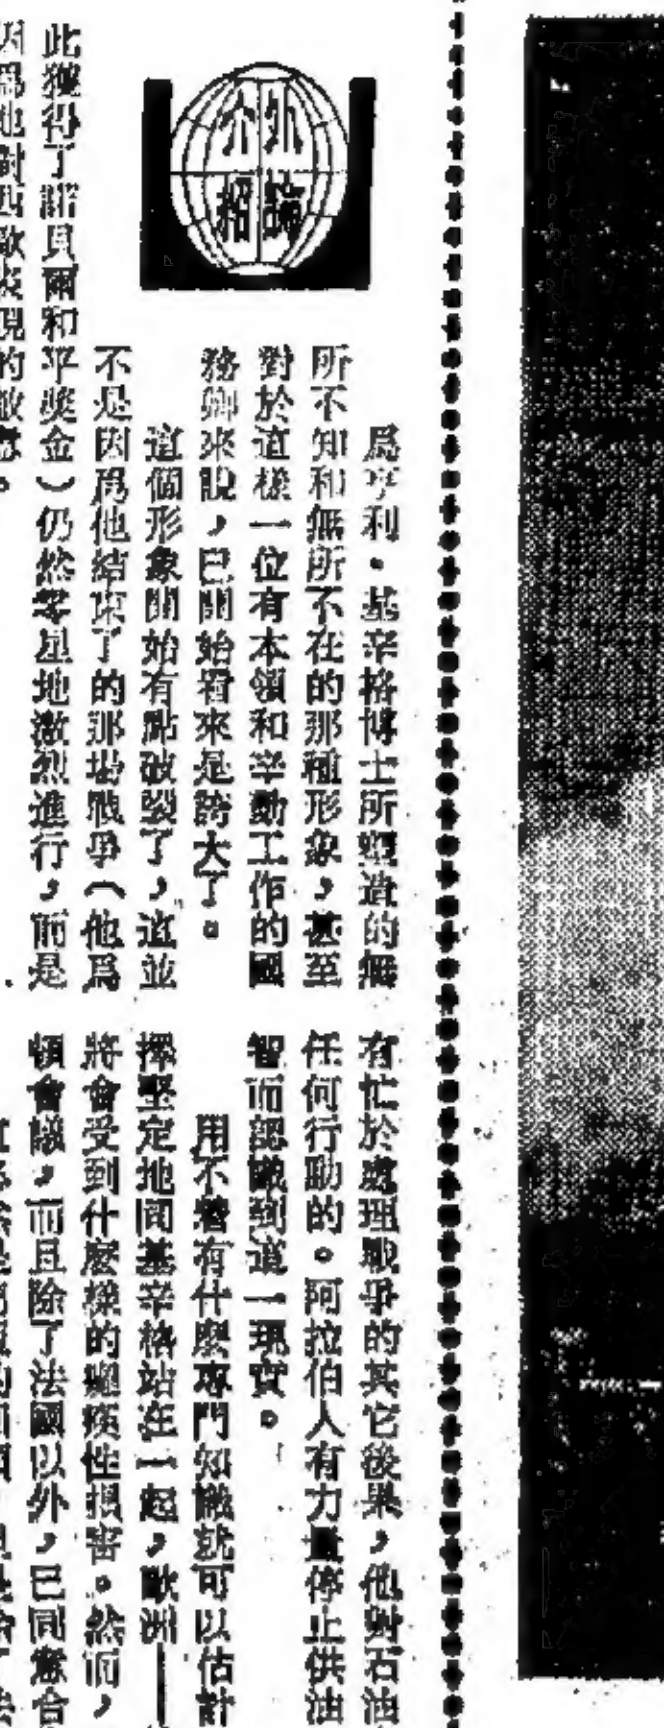 外論
介紹
爲亨利·基辛格博士所塑造的無
所不知和無所不在的那種形象，甚至
對於這樣一位有本領和辛勤工作的國
務卿來說，已開始看來是誇大了。
這個形象開始有點破裂了，這並
不是因爲他結束了的那場戰爭（他爲
此獲得了諾貝爾和平獎金）仍然零星地激烈進行，而是
因爲他對西歐表現的敵意。
有忙於處理戰爭的其它後果，他對石油
任何行動的。阿拉伯人有力量停止供油
智而認識到這一現實。
用不着有什麼專門知識就可以估計
擇堅定地同基辛格站在一起，歐洲——
將會受到什麼樣的癱瘓性損害。然而，
頓會議，而且除了法國以外，已同意合